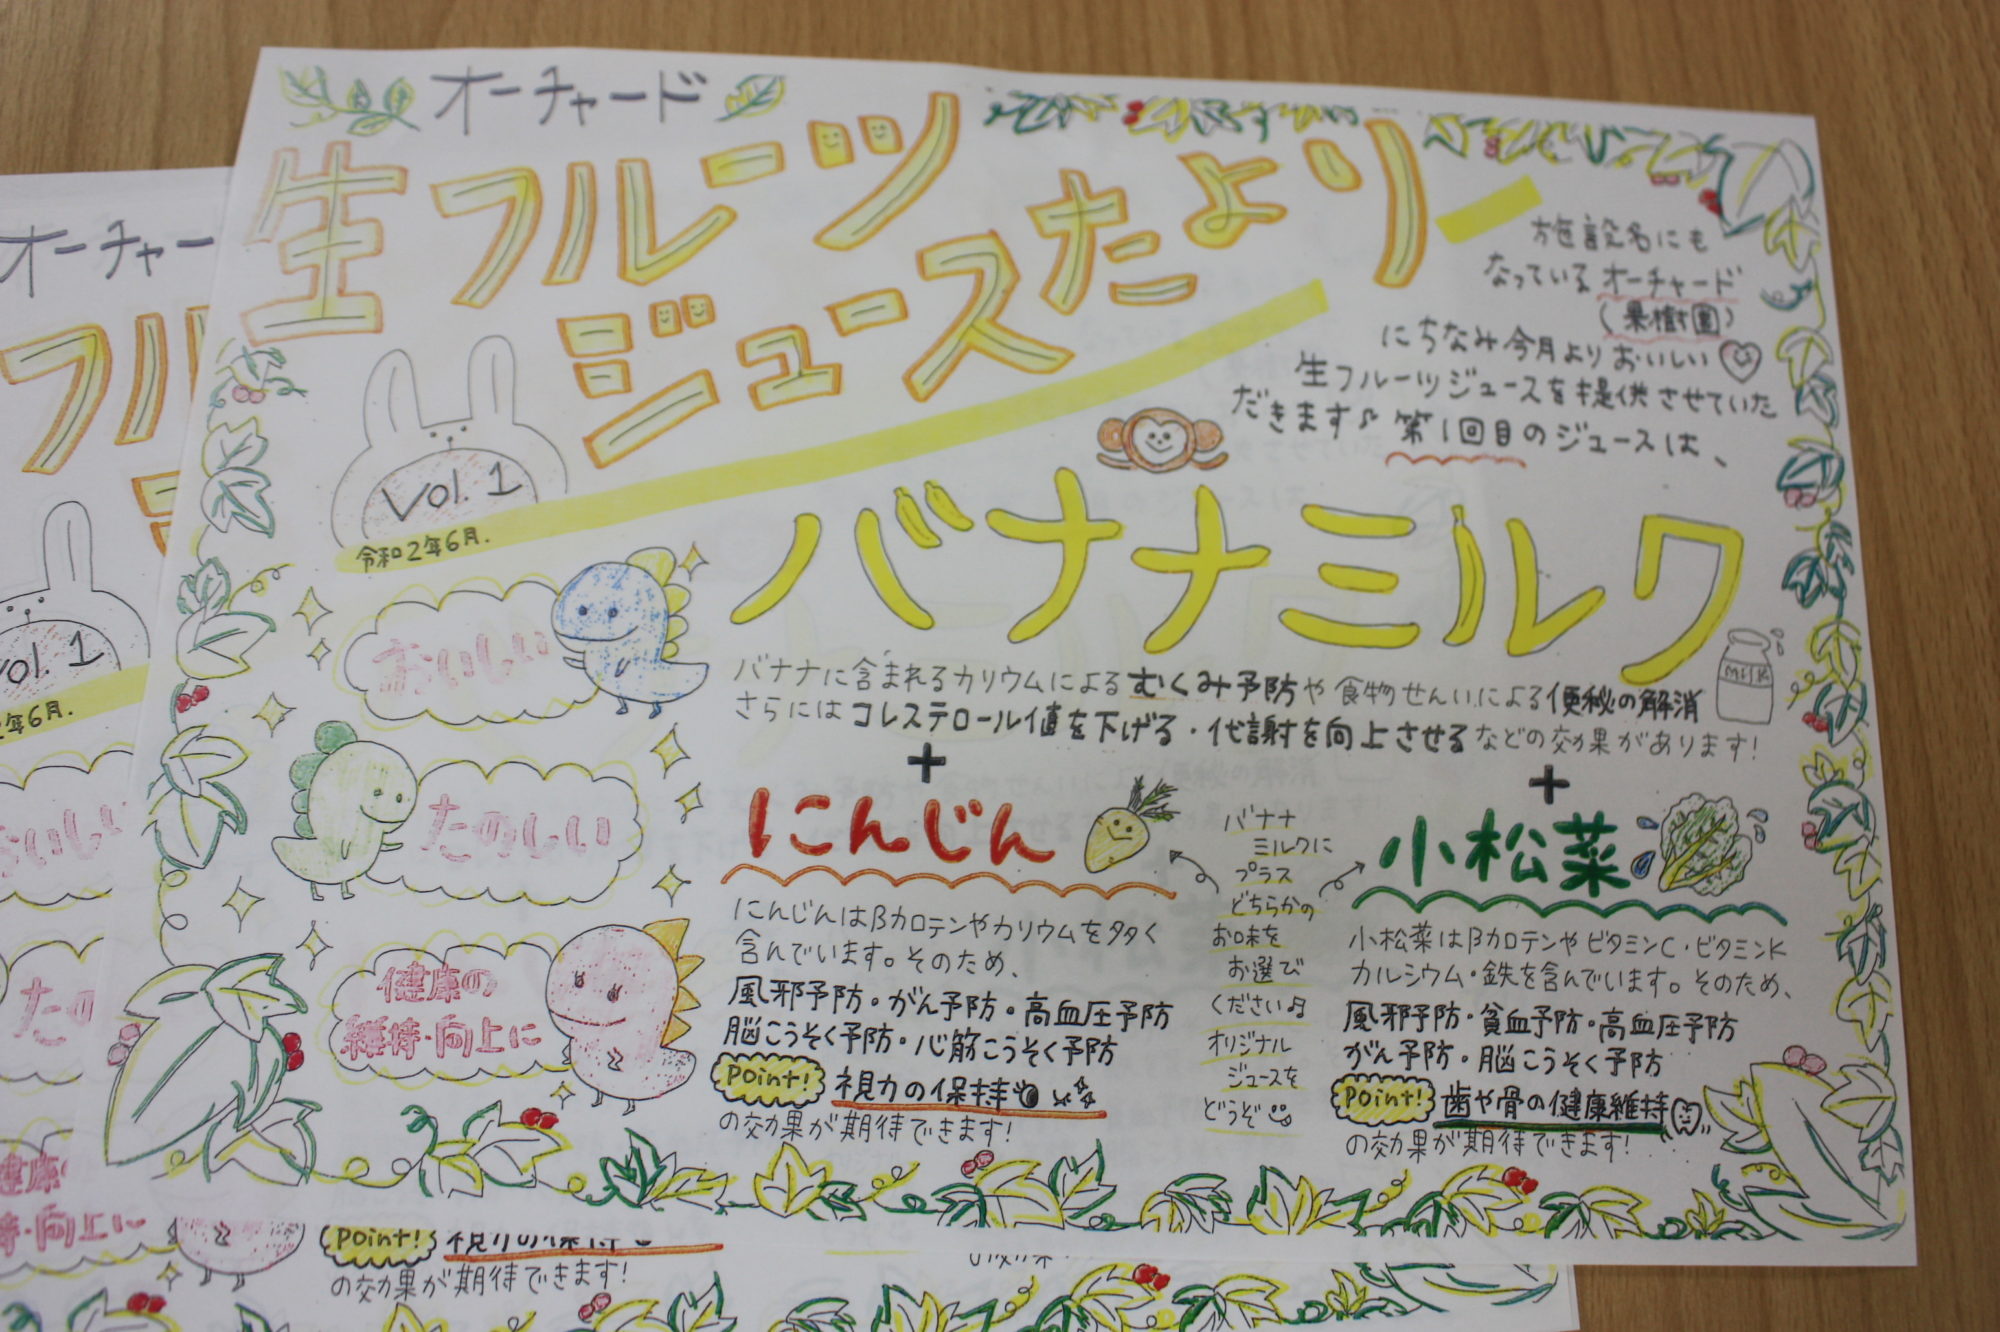 オーチャード
生フルーツ
ジュースたより
Vol.1
令和2年6月.
施設名にも
なっているオーチャード
(果樹園)
にちなみ今月よりおいしい
生フルーツジュースを提供させていた
だきます♪ 第1回目のジュースは、
バナナミルク
MILK
バナナに含まれるカリウムによるむくみ予防や食物せんいによる便秘の解消
さらにはコレステロール値を下げる・代謝を向上させるなどの効果があります!
おいしい
たのしい
健康の
維持・向上に
+
にんじん
にんじんはβカロテンやカリウムを多く
含んでいます。そのため、
風邪予防・がん予防・高血圧予防
脳こうそく予防・心筋こうそく予防
Point! 視力の保持
の効果が期待できます!
バナナ
ミルクに
プラス
どちらかの
お味を
お選び
ください♪
オリジナル
ジュースを
どうぞ
+
小松菜
小松菜はβカロテンやビタミンC・ビタミンK
カルシウム・鉄を含んでいます。そのため、
風邪予防・貧血予防・高血圧予防
がん予防・脳こうそく予防
Point! 歯や骨の健康維持
の効果が期待できます!
オーチャー
フル
Vol.1
年6月.
おいしい
たの
健康
持・向上に
Point!
の効果が期待できます!